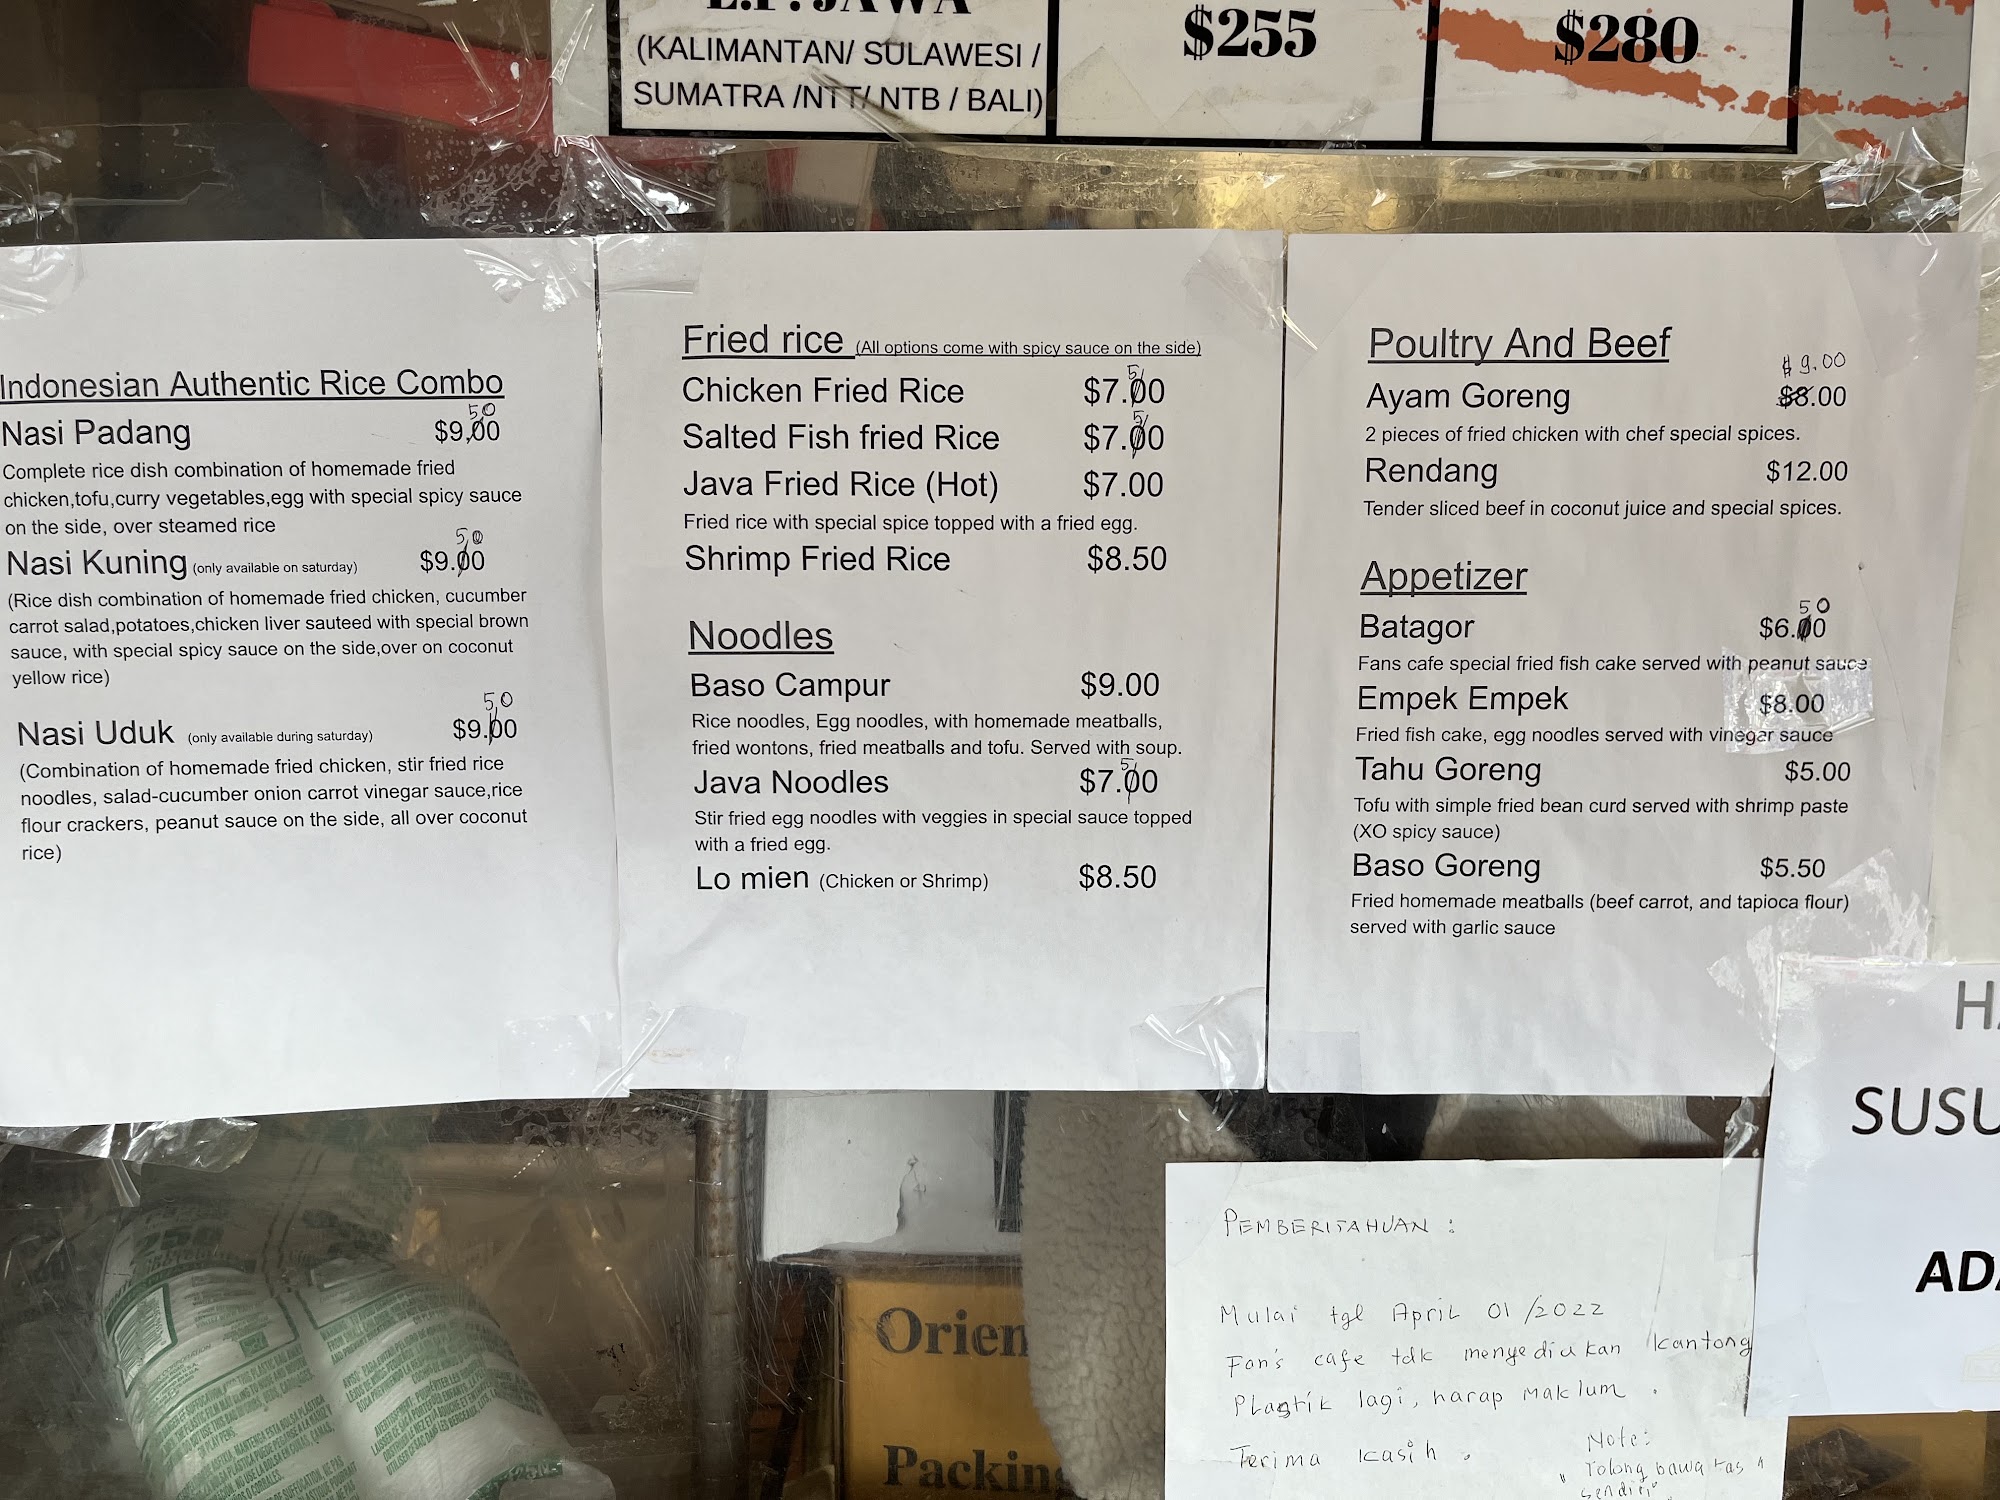 (KALIMANTAN/ SULAWESI /
SUMATRA /NTT/ NTB / BALI)
$255
$280
Indonesian Authentic Rice Combo
50
Nasi Padang $9,00
Complete rice dish combination of homemade fried
chicken,tofu,curry vegetables,egg with special spicy sauce
on the side, over steamed rice
50
Nasi Kuning (only available on saturday) $9.00
(Rice dish combination of homemade fried chicken, cucumber
carrot salad,potatoes,chicken liver sauteed with special brown
sauce, with special spicy sauce on the side,over on coconut
yellow rice)
50
Nasi Uduk (only available during saturday) $9.00
(Combination of homemade fried chicken, stir fried rice
noodles, salad-cucumber onion carrot vinegar sauce,rice
flour crackers, peanut sauce on the side, all over coconut
rice)
Fried rice (All options come with spicy sauce on the side)
5
Chicken Fried Rice $7.00
5
Salted Fish fried Rice $7.00
Java Fried Rice (Hot) $7.00
Fried rice with special spice topped with a fried egg.
Shrimp Fried Rice $8.50
Noodles
Baso Campur $9.00
Rice noodles, Egg noodles, with homemade meatballs,
fried wontons, fried meatballs and tofu. Served with soup.
5
Java Noodles $7.00
Stir fried egg noodles with veggies in special sauce topped
with a fried egg.
Lo mien (Chicken or Shrimp) $8.50
Poultry And Beef
$9.00
Ayam Goreng $8.00
2 pieces of fried chicken with chef special spices.
Rendang $12.00
Tender sliced beef in coconut juice and special spices.
Appetizer
50
Batagor $6.00
Fans cafe special fried fish cake served with peanut sauce
Empek Empek $8.00
Fried fish cake, egg noodles served with vinegar sauce
Tahu Goreng $5.00
Tofu with simple fried bean curd served with shrimp paste
(XO spicy sauce)
Baso Goreng $5.50
Fried homemade meatballs (beef carrot, and tapioca flour)
served with garlic sauce
SUSU
PEMBERITAHUAN :
Mulai tgl April 01/2022
Fan's cafe tdk menyediakan kantong
Plastik lagi, harap maklum.
Terima kasih.
Note:
"Tolong bawa tas
sendiri"
Orien
Packin